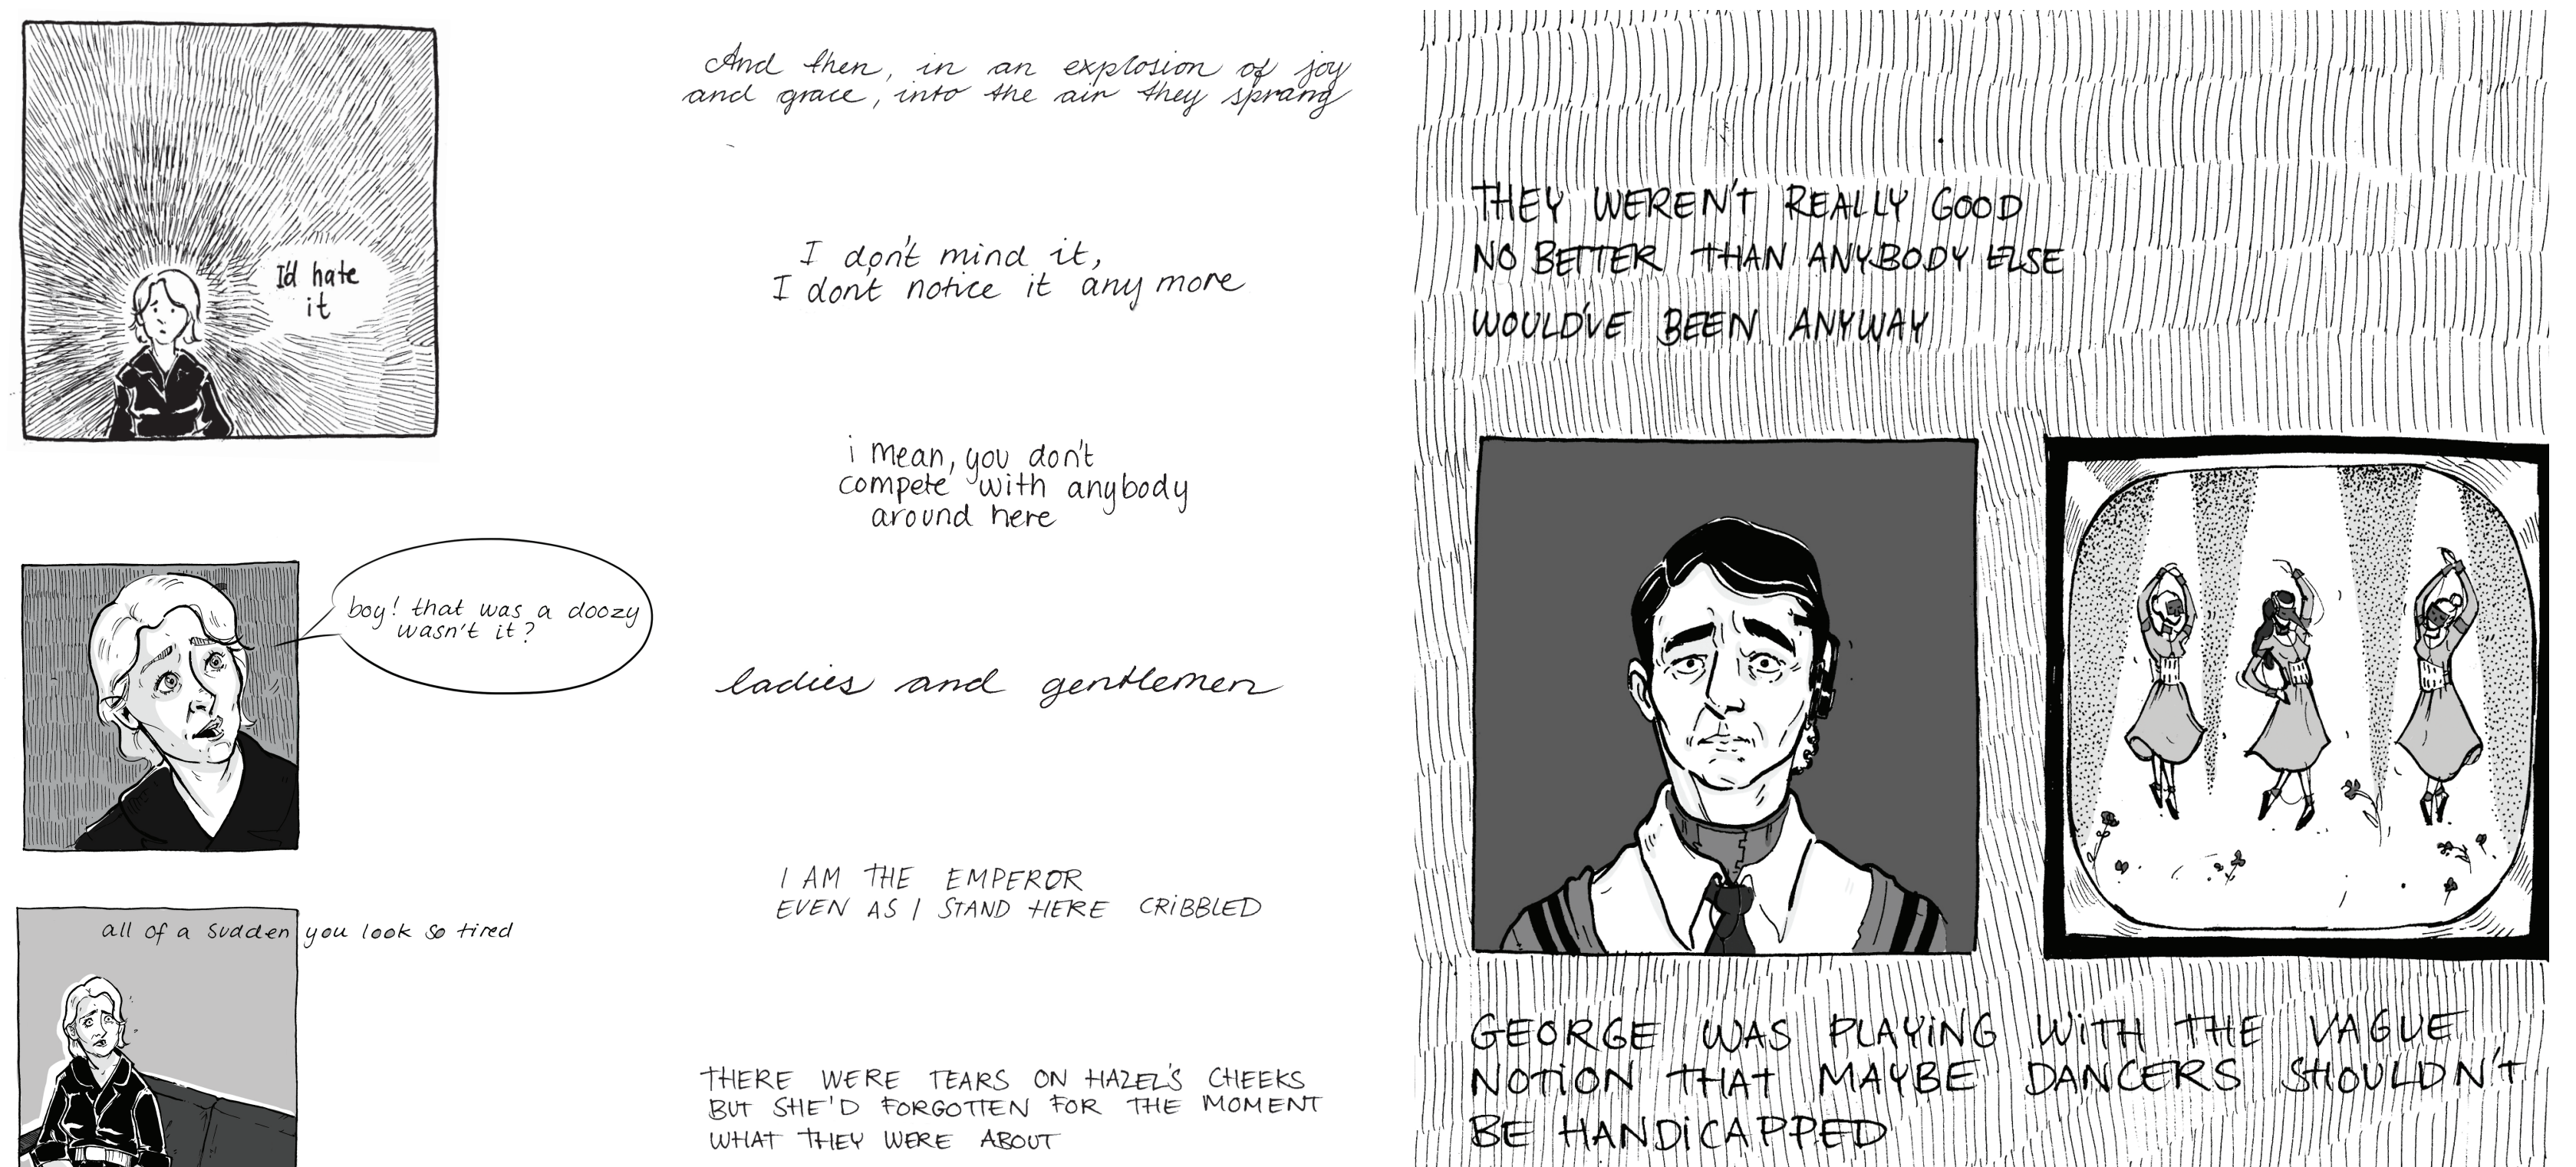 I'd hate
it
boy! that was a doozy
wasn't it?
all of a sudden you look so tired
And then, in an explosion of joy
and grace, into the air they sprang
I don't mind it,
I don't notice it any more
i mean, you don't
compete with anybody
around here
ladies and gentlemen
I AM THE EMPEROR
EVEN AS I STAND HERE CRIBBLED
THERE WERE TEARS ON HAZEL'S CHEEKS
BUT SHE'D FORGOTTEN FOR THE MOMENT
WHAT THEY WERE ABOUT
THEY WEREN'T REALLY GOOD
NO BETTER THAN ANYBODY ELSE
WOULD'VE BEEN ANYWAY
GEORGE WAS PLAYING WITH THE VAGUE
NOTION THAT MAYBE DANCERS SHOULDN'T
BE HANDICAPPED